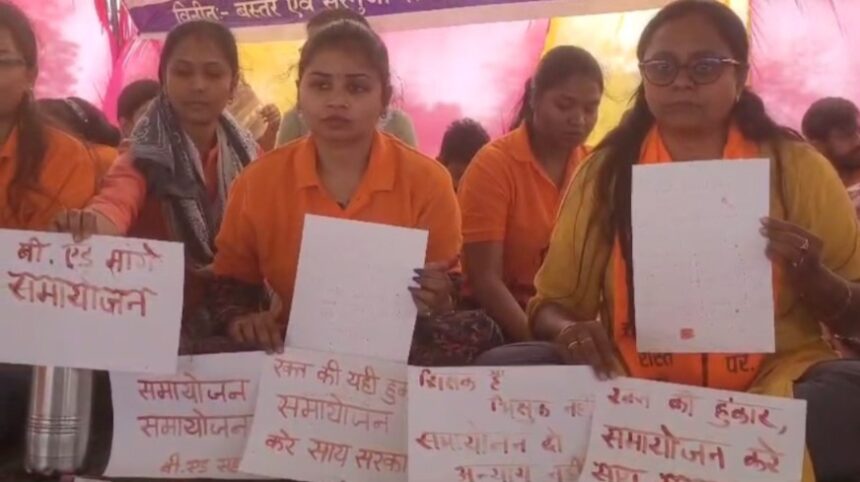 विनीत:- बस्तर एवं सरगुजा
बी. एड मांगे
समायोजन
समायोजन
समायोजन
बी. एड
रक्त की यही हुं
समायोजन
करे साय सरका
शिक्षक है
भिक्षुक नहीं
समायोजन दो
अन्याय नहीं
रक्त की हुंकार,
समायोजन करे
साय
पर